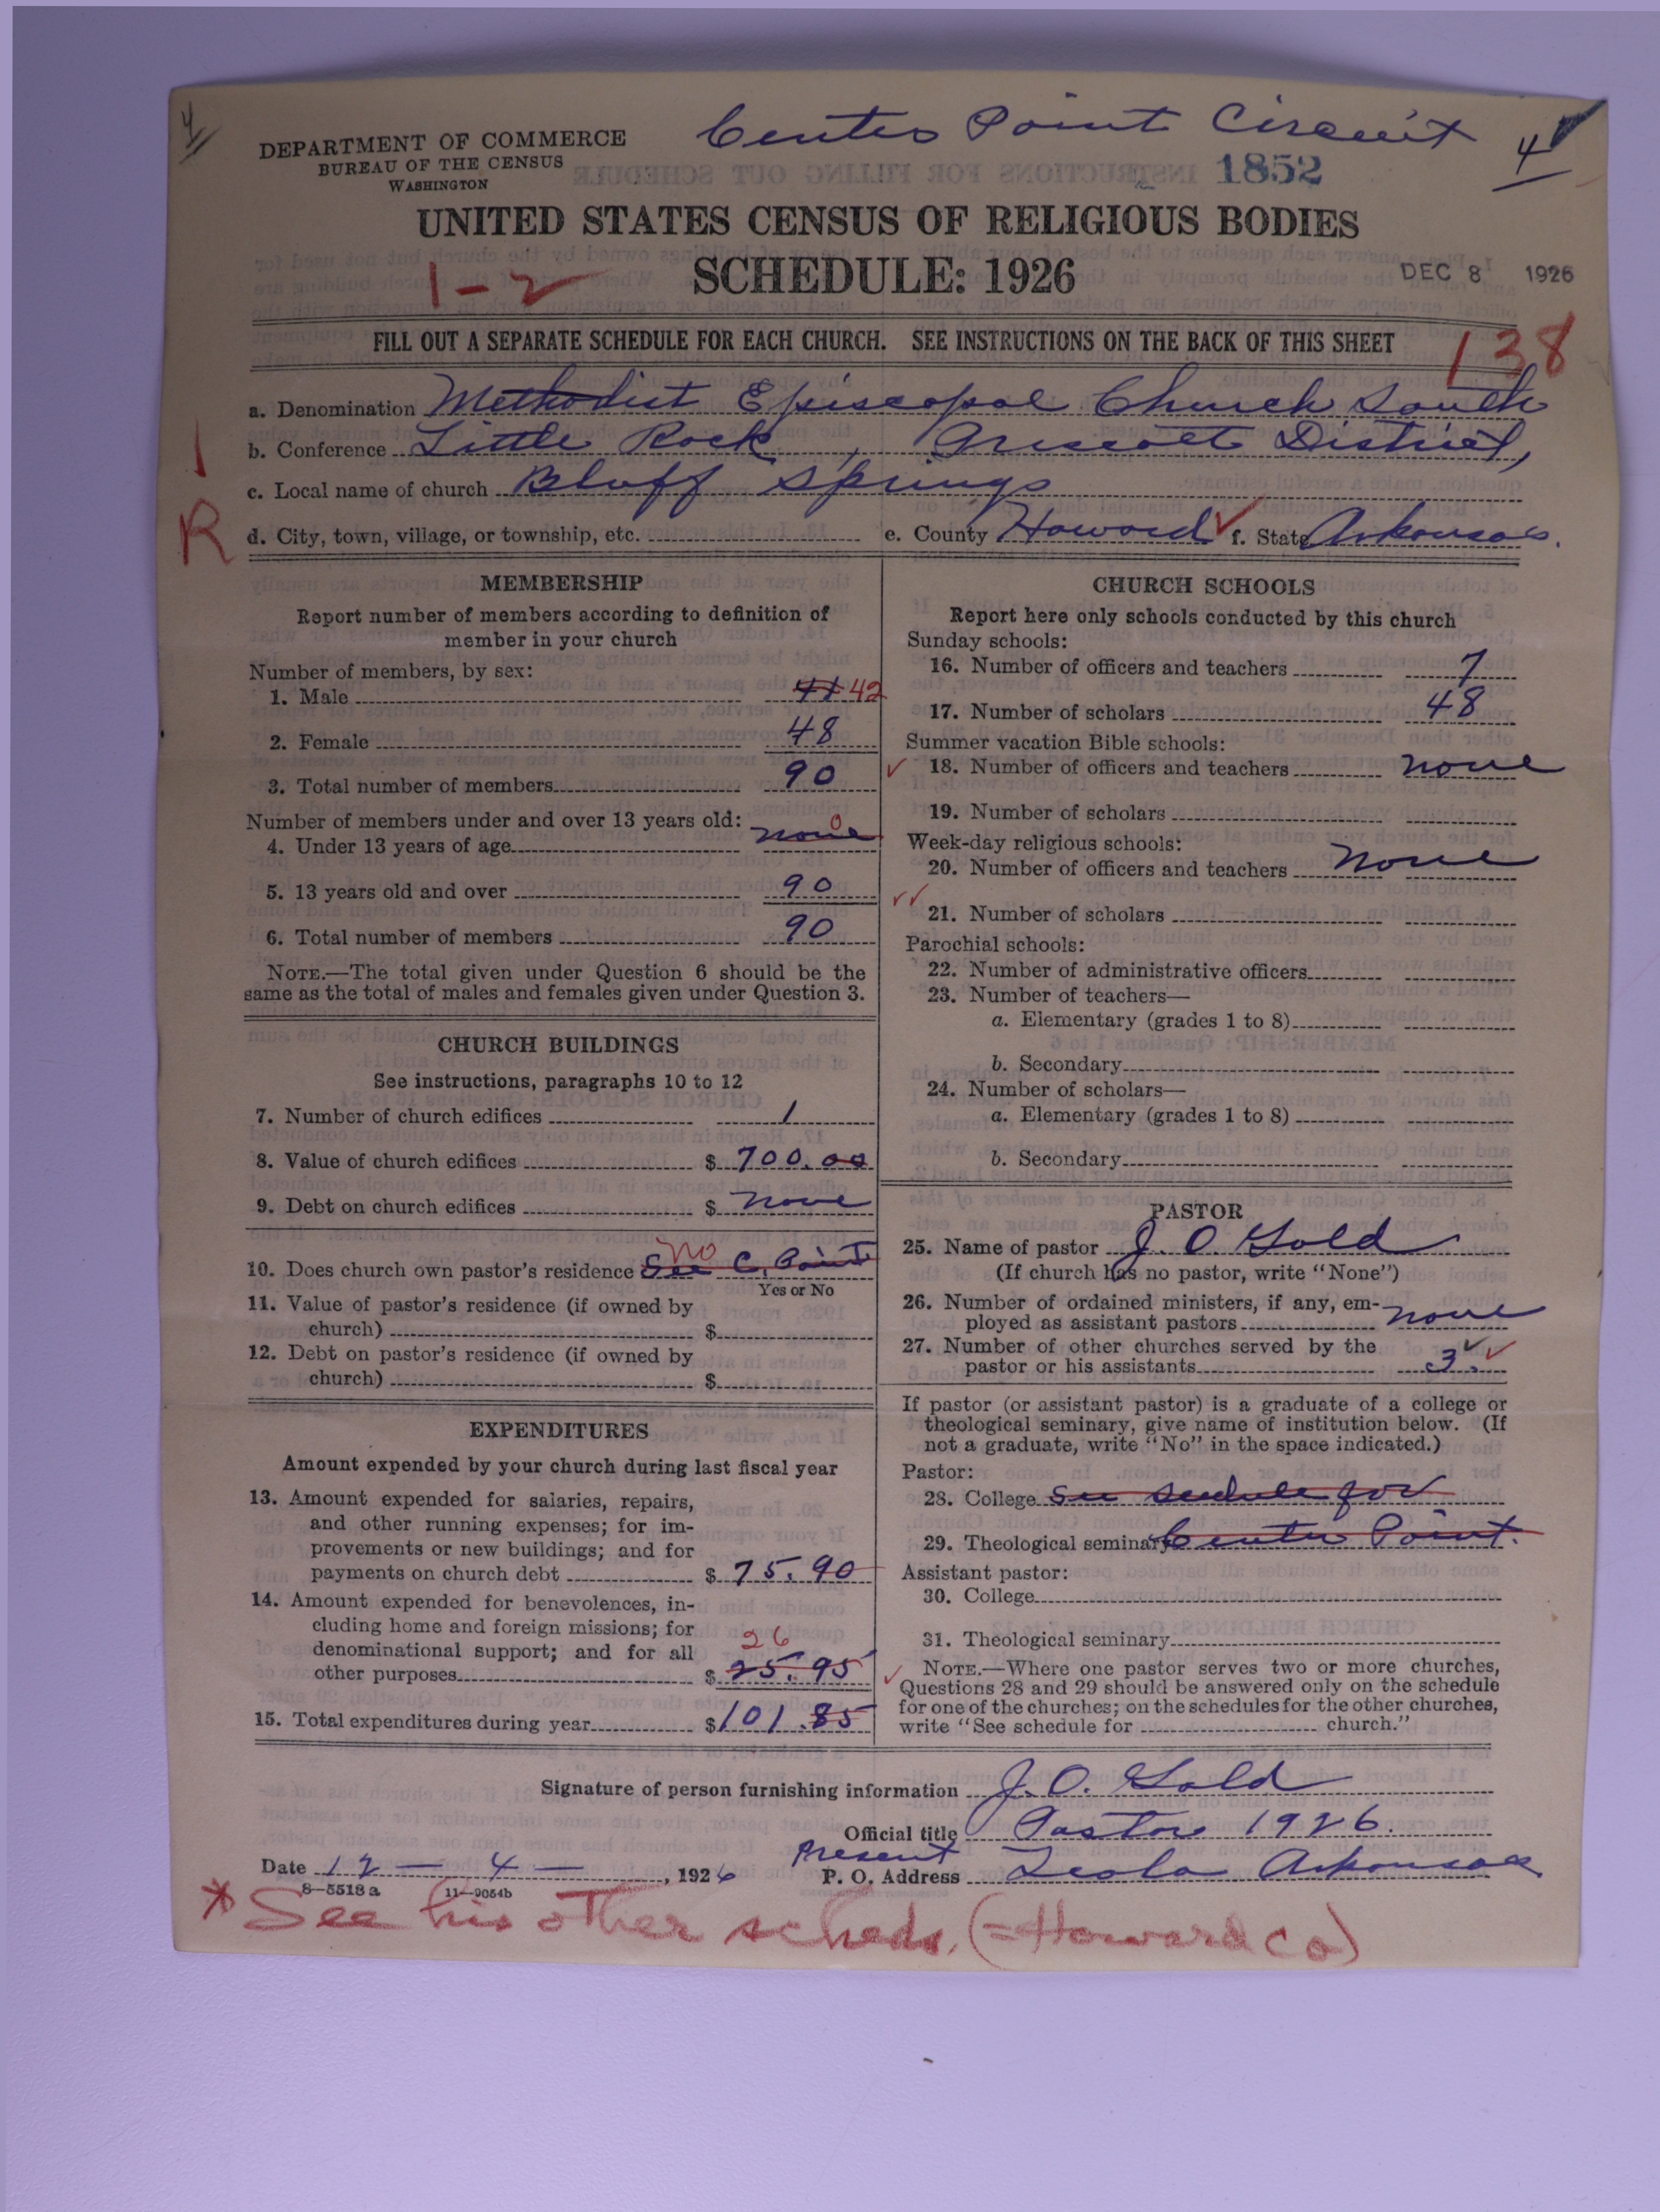 4
Center Point Circuit
4
DEPARTMENT OF COMMERCE
BUREAU OF THE CENSUS
WASHINGTON
1852
UNITED STATES CENSUS OF RELIGIOUS BODIES
1-2
SCHEDULE: 1926
DEC 8 1926
FILL OUT A SEPARATE SCHEDULE FOR EACH CHURCH. SEE INSTRUCTIONS ON THE BACK OF THIS SHEET
138
a. Denomination Methodist Episcopal Church South
b. Conference Little Rock, Prescott District,
c. Local name of church Bluff Springs
1
R
d. City, town, village, or township, etc. e. County Howard f. State Arkansas.
MEMBERSHIP
Report number of members according to definition of
member in your church
Number of members, by sex:
1. Male 41 42
2. Female 48
3. Total number of members 90
Number of members under and over 13 years old:
4. Under 13 years of age none 0
5. 13 years old and over 90
6. Total number of members 90
NOTE.—The total given under Question 6 should be the
same as the total of males and females given under Question 3.
CHURCH BUILDINGS
See instructions, paragraphs 10 to 12
7. Number of church edifices 1
8. Value of church edifices $ 700.00
9. Debt on church edifices $ none
10. Does church own pastor's residence See C. Point No
Yes or No
11. Value of pastor's residence (if owned by
church) $
12. Debt on pastor's residence (if owned by
church) $
EXPENDITURES
Amount expended by your church during last fiscal year
13. Amount expended for salaries, repairs,
and other running expenses; for im-
provements or new buildings; and for
payments on church debt $ 75.90
14. Amount expended for benevolences, in-
cluding home and foreign missions; for
denominational support; and for all
26
other purposes $ 25.95
15. Total expenditures during year $ 101.85
CHURCH SCHOOLS
Report here only schools conducted by this church
Sunday schools:
16. Number of officers and teachers 7
17. Number of scholars 48
Summer vacation Bible schools:
18. Number of officers and teachers none
19. Number of scholars
Week-day religious schools:
20. Number of officers and teachers none
21. Number of scholars
Parochial schools:
22. Number of administrative officers
23. Number of teachers—
a. Elementary (grades 1 to 8)
b. Secondary
24. Number of scholars—
a. Elementary (grades 1 to 8)
b. Secondary
PASTOR
25. Name of pastor J. O. Gold
(If church has no pastor, write "None")
26. Number of ordained ministers, if any, em-
ployed as assistant pastors none
27. Number of other churches served by the
pastor or his assistants 3.
If pastor (or assistant pastor) is a graduate of a college or
theological seminary, give name of institution below. (If
not a graduate, write "No" in the space indicated.)
Pastor:
28. College See schedule for
29. Theological seminary Center Point.
Assistant pastor:
30. College
31. Theological seminary
NOTE.—Where one pastor serves two or more churches,
Questions 28 and 29 should be answered only on the schedule
for one of the churches; on the schedules for the other churches,
write "See schedule for church."
Signature of person furnishing information J. O. Gold
Official title Pastor 1926.
Present
Date 12-4-, 1926 P. O. Address Leola Arkansas
8-5518 a 11-9054b
* See his other scheds. (=Howard Co)